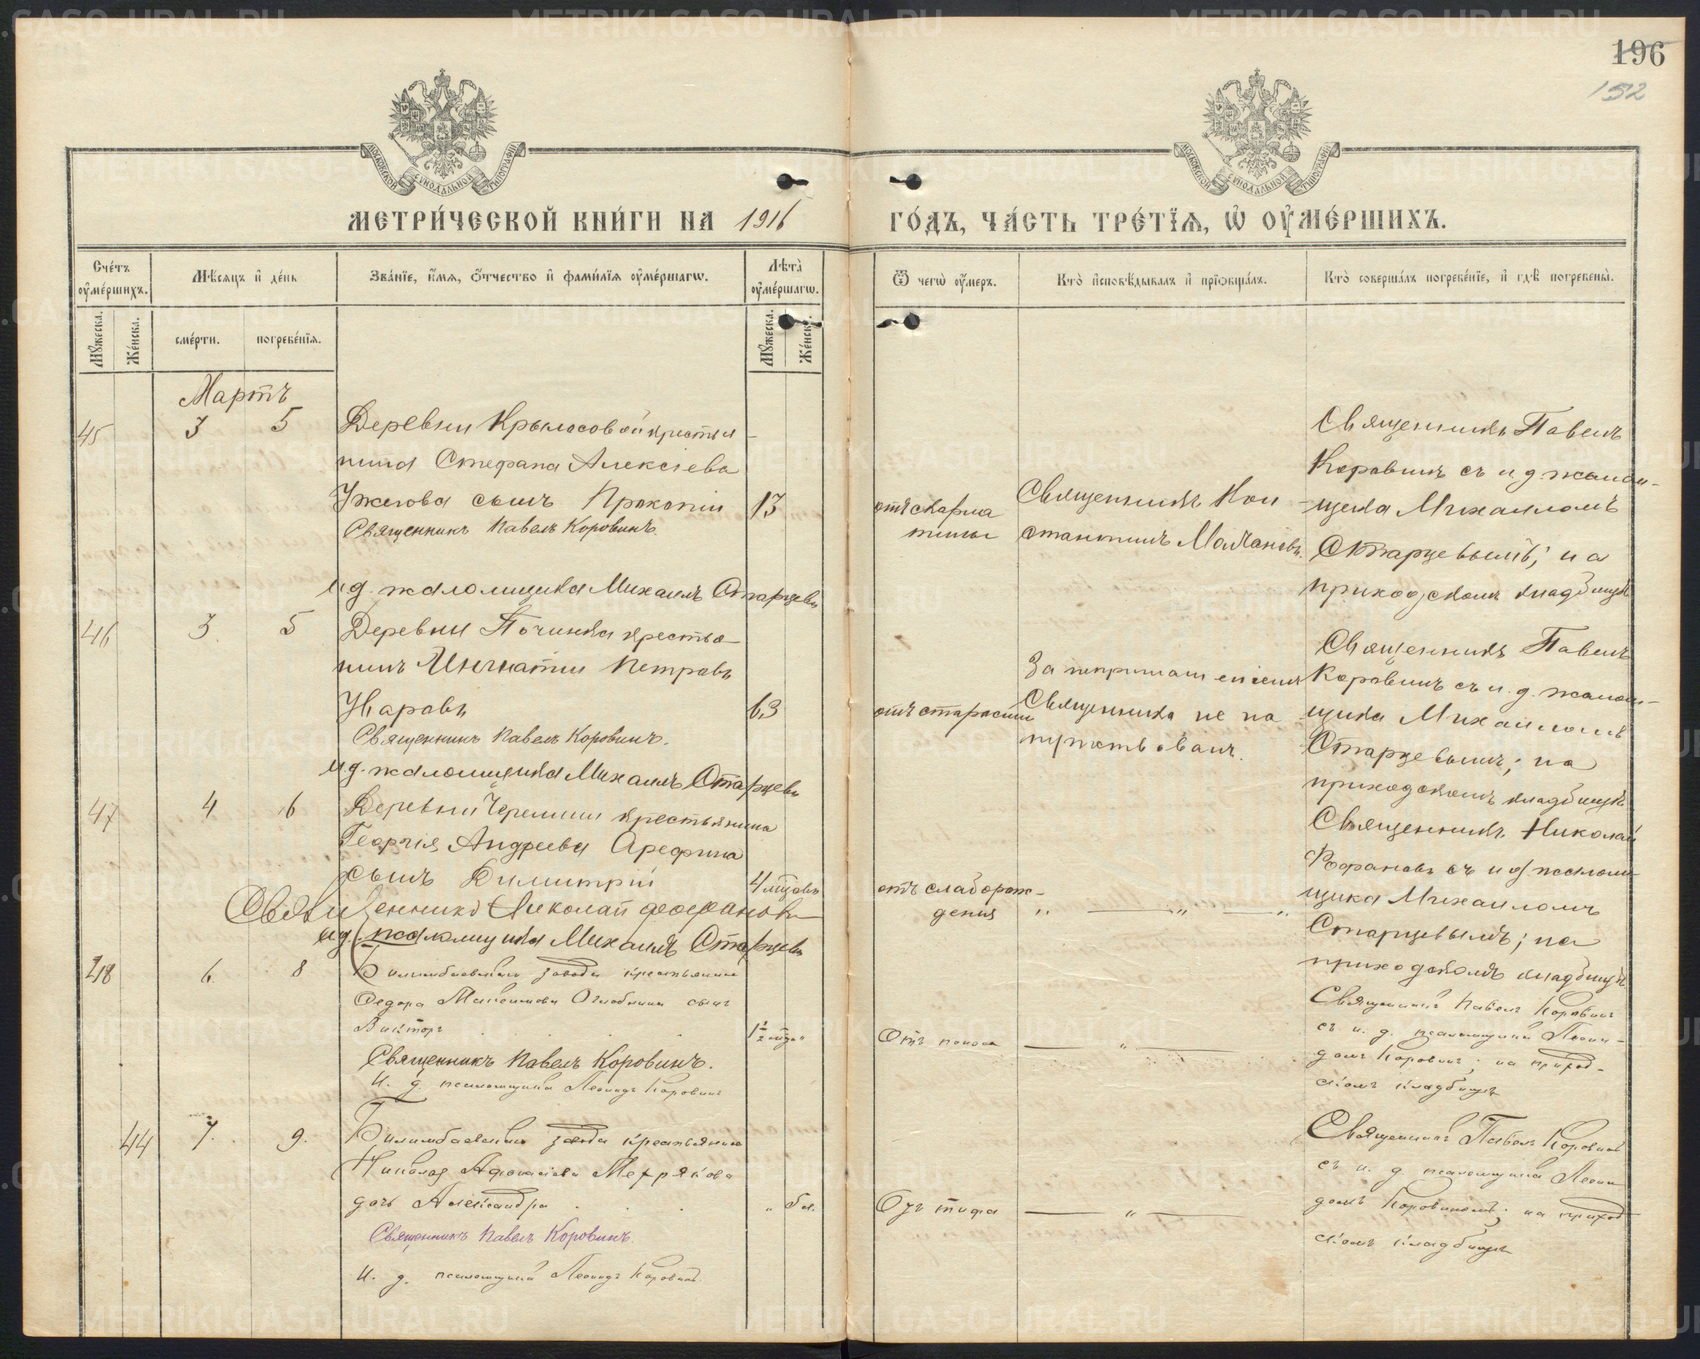 196
192
МЕТРИ́ЧЕСКОЙ КНИ́ГИ НА 1916 ГО́ДЪ, ЧА́СТЬ ТРЕ́ТІѦ, Ѡ҆ ОУ҆МЕ́РШИХЪ.
Сче́тъ оу҆ме́ршихъ.
Мѣ́сѧцъ и҆ де́нь
Зва́нїе, и҆́мѧ, ѻ҆́тчество и҆ фами́лїѧ оу҆ме́ршагѡ.
Лѣта̀ оу҆ме́ршагѡ.
Ѿ чегѡ̀ оу҆́меръ.
Кто̀ и҆сповѣ́дывалъ и҆ прїѡбща́лъ.
Кто̀ соверша́лъ погребе́нїе, и҆ гдѣ̀ погребены̀.
Мꙋ́жеска.
Же́нска.
сме́рти.
погребе́нїѧ.
Мꙋ́жеска.
Же́нска.
Мартъ
45
3
5
Деревни Крыласовой крестья
нина Стефана Алексіева
Ужегова сынъ Прокопій
13
Священникъ Павелъ Коровинъ
и д. псаломщика Михаилъ Старцевъ
отъ скарла
тины
Священникъ Кон
стантинъ Молчановъ
Священникъ Павелъ
Коровинъ съ и д. псалом-
щика Михаиломъ
Старцевымъ; на
приходскомъ кладбищѣ
46
3.
5
Деревни Починка крестья
нинъ Игнатій Петровъ
Шаровъ
63
Священникъ Павелъ Коровинъ.
и д. псаломщика Михаилъ Старцевъ
отъ старости
За непринятіемъ
Священника не на
путствованъ.
Священникъ Павелъ
Коровинъ съ и. д. псалом-
щика Михаиломъ
Старцевымъ; на
приходскомъ кладбищѣ
47
4
6
Деревни Черемши крестьянина
Георгія Андреева Арефина
сынъ Димитрій
4 мѣсяц
Священникъ Николай Феофановъ
ид. псаломщика Михаилъ Старцевъ
отъ слаборож-
денія
„ — „ — „
Священникъ Николай
Феофановъ съ и д псалом-
щика Михаиломъ
Старцевымъ; на
приходскомъ кладбищѣ
48
6.
8
Билимбаевскаго завода крестьянина
Федора Максимова Оглоблина сынъ
Викторъ
1½ года
Священникъ Павелъ Коровинъ.
И. д. псаломщика Леонидъ Коровинъ
Отъ поноса
— „ —
Священникъ Павелъ Коровинъ
съ и. д. псаломщика Леони-
домъ Коровинымъ; на приход-
скомъ кладбищѣ
44
7.
9.
Билимбаевскаго завода крестьянина
Николая Афонасіева Мехрякова
дочь Александра
„ 6 л.
Священникъ Павелъ Коровинъ.
И. д. псаломщика Леонидъ Коровинъ
Отъ тифа
— „ —
Священникъ Павелъ Коровинъ
съ и. д. псаломщика Леони-
домъ Коровинымъ; на приход-
скомъ кладбищѣ
METRIKI.GASO-URAL.RU